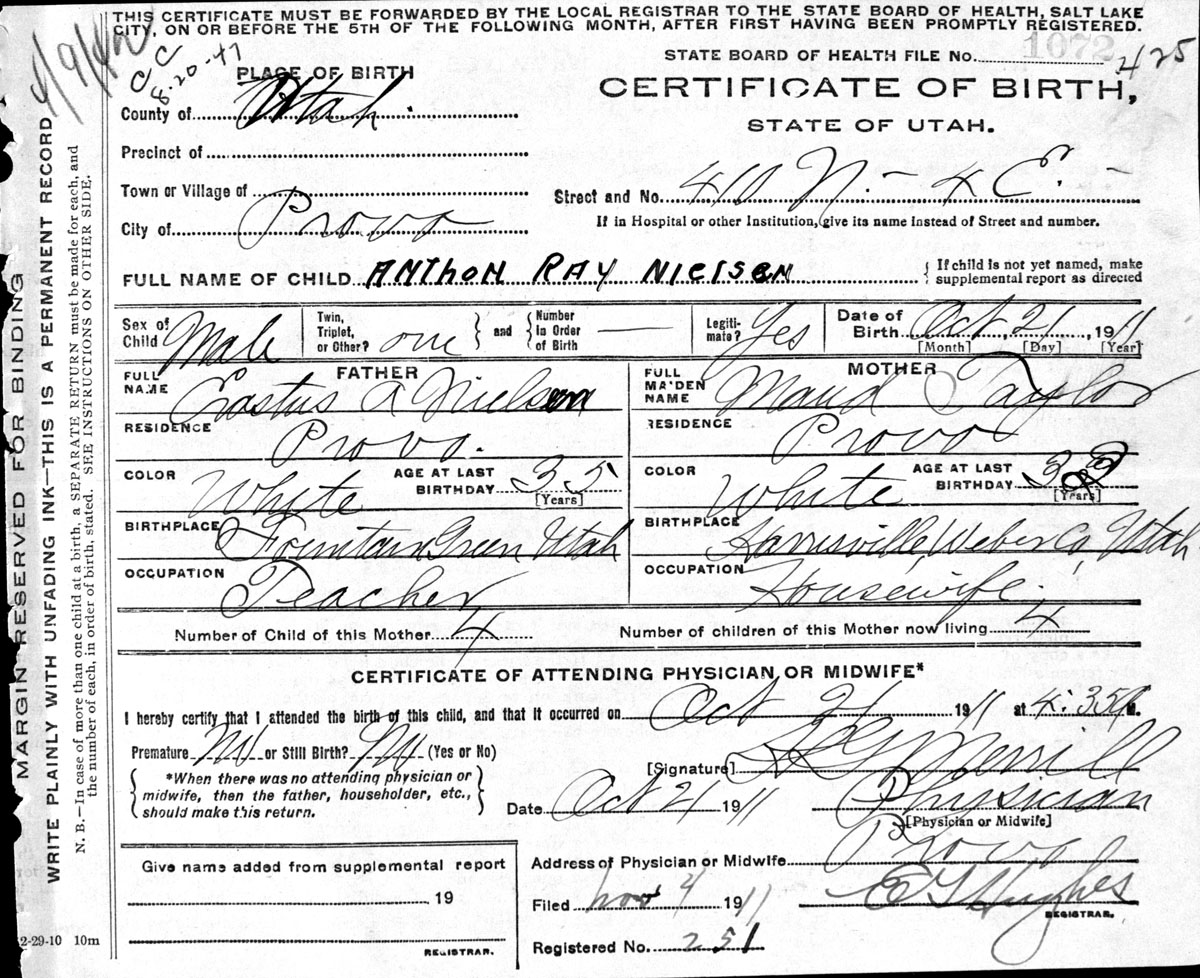 THIS CERTIFICATE MUST BE FORWARDED BY THE LOCAL REGISTRAR TO THE STATE BOARD OF HEALTH, SALT LAKE
CITY, ON OR BEFORE THE 5TH OF THE FOLLOWING MONTH, AFTER FIRST HAVING BEEN PROMPTLY REGISTERED.
4/9/42
CC
8-20-47
STATE BOARD OF HEALTH FILE No. 1072 425
PLACE OF BIRTH
CERTIFICATE OF BIRTH,
STATE OF UTAH.
County of Utah.
Precinct of
Town or Village of
Street and No. 410 N. - 4 E. -
City of Provo
If in Hospital or other Institution, give its name instead of Street and number.
FULL NAME OF CHILD ANTHON RAY NIELSEN
{ If child is not yet named, make
supplemental report as directed
Sex of Child Male
Twin, Triplet, or Other? one } and { Number in Order of Birth —
Legitimate? Yes
Date of Birth Oct 21, 1911
[Month] [Day] [Year]
FATHER
FULL NAME Erastus A Nielsen
RESIDENCE Provo.
COLOR White AGE AT LAST BIRTHDAY 35
[Years]
BIRTHPLACE Fountain Green Utah
OCCUPATION Teacher
MOTHER
FULL MAIDEN NAME Maud Taylor
RESIDENCE Provo
COLOR White AGE AT LAST BIRTHDAY
[Years]
BIRTHPLACE Harrisville, Weber Co, Utah
OCCUPATION Housewife.
Number of Child of this Mother 4 Number of children of this Mother now living 4
CERTIFICATE OF ATTENDING PHYSICIAN OR MIDWIFE*
I hereby certify that I attended the birth of this child, and that it occurred on Oct 21 1911 at 4:35 M.
Premature No or Still Birth? No (Yes or No)
{ *When there was no attending physician or
midwife, then the father, householder, etc.,
should make this return. }
[Signature] Merrill
Date Oct 1911 Physician
[Physician or Midwife]
Give name added from supplemental report
19
REGISTRAR.
Address of Physician or Midwife Provo
Filed Nov 4 1911 Hughes
REGISTRAR.
Registered No. 251
2-29-10 10m
MARGIN RESERVED FOR BINDING
WRITE PLAINLY WITH UNFADING INK—THIS IS A PERMANENT RECORD
N. B.—In case of more than one child at a birth, a SEPARATE RETURN must be made for each, and
the number of each, in order of birth, stated. SEE INSTRUCTIONS ON OTHER SIDE.